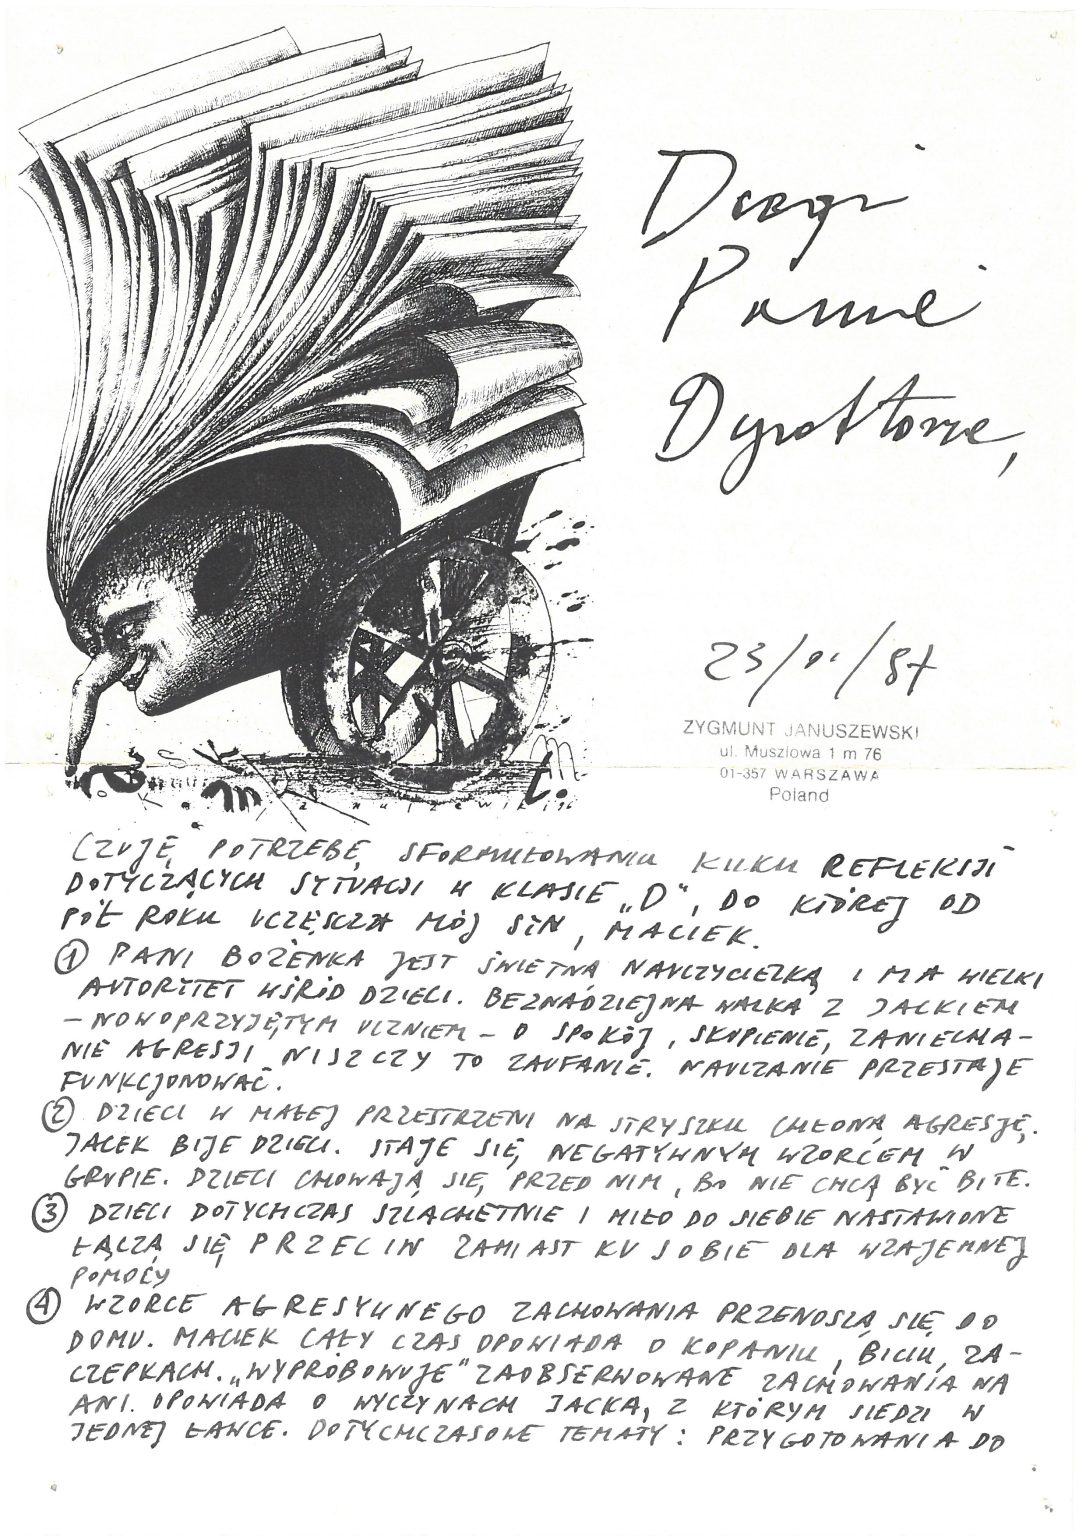 Drogi
Panie
Dyrektorze,
23/01/87
ZYGMUNT JANUSZEWSKI
ul. Muszlowa 1 m 76
01-357 WARSZAWA
Poland
CZUJĘ POTRZEBĘ SFORMUŁOWANIA KILKU REFLEKSJI
DOTYCZĄCYCH SYTUACJI W KLASIE „D", DO KTÓREJ OD
PÓŁ ROKU UCZĘSZCZA MÓJ SYN, MACIEK.
① PANI BOŻENKA JEST ŚWIETNĄ NAUCZYCIELKĄ I MA WIELKI
AUTORYTET WŚRÓD DZIECI. BEZNADZIEJNA WALKA Z JACKIEM
– NOWOPRZYJĘTYM UCZNIEM – O SPOKÓJ, SKUPIENIE, ZANIECHA–
NIE AGRESJI NISZCZY TO ZAUFANIE. NAUCZANIE PRZESTAJE
FUNKCJONOWAĆ.
② DZIECI W MAŁEJ PRZESTRZENI NA STRYSZKU CHŁONĄ AGRESJĘ.
JACEK BIJE DZIECI. STAJE SIĘ NEGATYWNYM WZORCEM W
GRUPIE. DZIECI CHOWAJĄ SIĘ PRZED NIM, BO NIE CHCĄ BYĆ BITE.
③ DZIECI DOTYCHCZAS SZLACHETNIE I MIŁO DO SIEBIE NASTAWIONE
ŁĄCZĄ SIĘ PRZECIW ZAMIAST KU SOBIE DLA WZAJEMNEJ
POMOCY
④ WZORCE AGRESYWNEGO ZACHOWANIA PRZENOSZĄ SIĘ DO
DOMU. MACIEK CAŁY CZAS OPOWIADA O KOPANIU, BICIU, ZA–
CZEPKACH. „WYPRÓBOWUJE" ZAOBSERWOWANE ZACHOWANIA NA
ANI. OPOWIADA O WYCZYNACH JACKA, Z KTÓRYM SIEDZI W
JEDNEJ ŁAWCE. DOTYCHCZASOWE TEMATY: PRZYGOTOWANIA DO